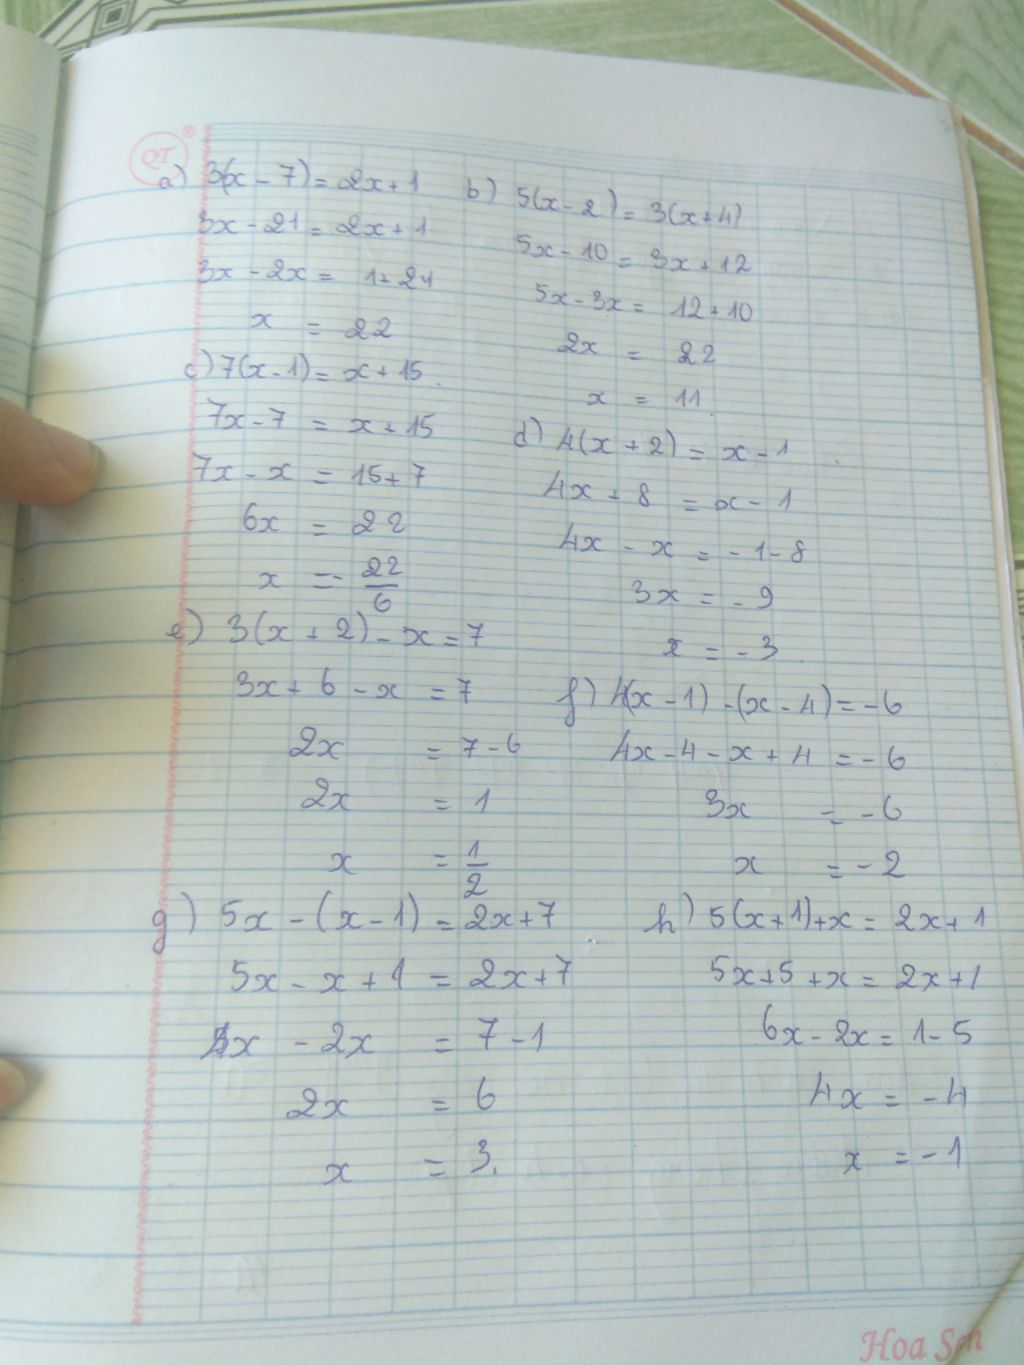 QT
a) 3(x - 7) = 2x + 1
3x - 21 = 2x + 1
3x - 2x = 1 + 21
x = 22
b) 5(x - 2) = 3(x + 4)
5x - 10 = 3x + 12
5x - 3x = 12 + 10
2x = 22
x = 11
c) 7(x - 1) = x + 15
7x - 7 = x + 15
7x - x = 15 + 7
6x = 22
x = - 22/6
d) 4(x + 2) = x - 1
4x + 8 = x - 1
4x - x = - 1 - 8
3x = - 9
x = - 3
e) 3(x + 2) - x = 7
3x + 6 - x = 7
2x = 7 - 6
2x = 1
x = 1/2
f) 4(x - 1) - (x - 4) = - 6
4x - 4 - x + 4 = - 6
3x = - 6
x = - 2
g) 5x - (x - 1) = 2x + 7
5x - x + 1 = 2x + 7
4x - 2x = 7 - 1
2x = 6
x = 3.
h) 5(x + 1) + x = 2x + 1
5x + 5 + x = 2x + 1
6x - 2x = 1 - 5
4x = - 4
x = - 1
Hoa Sen